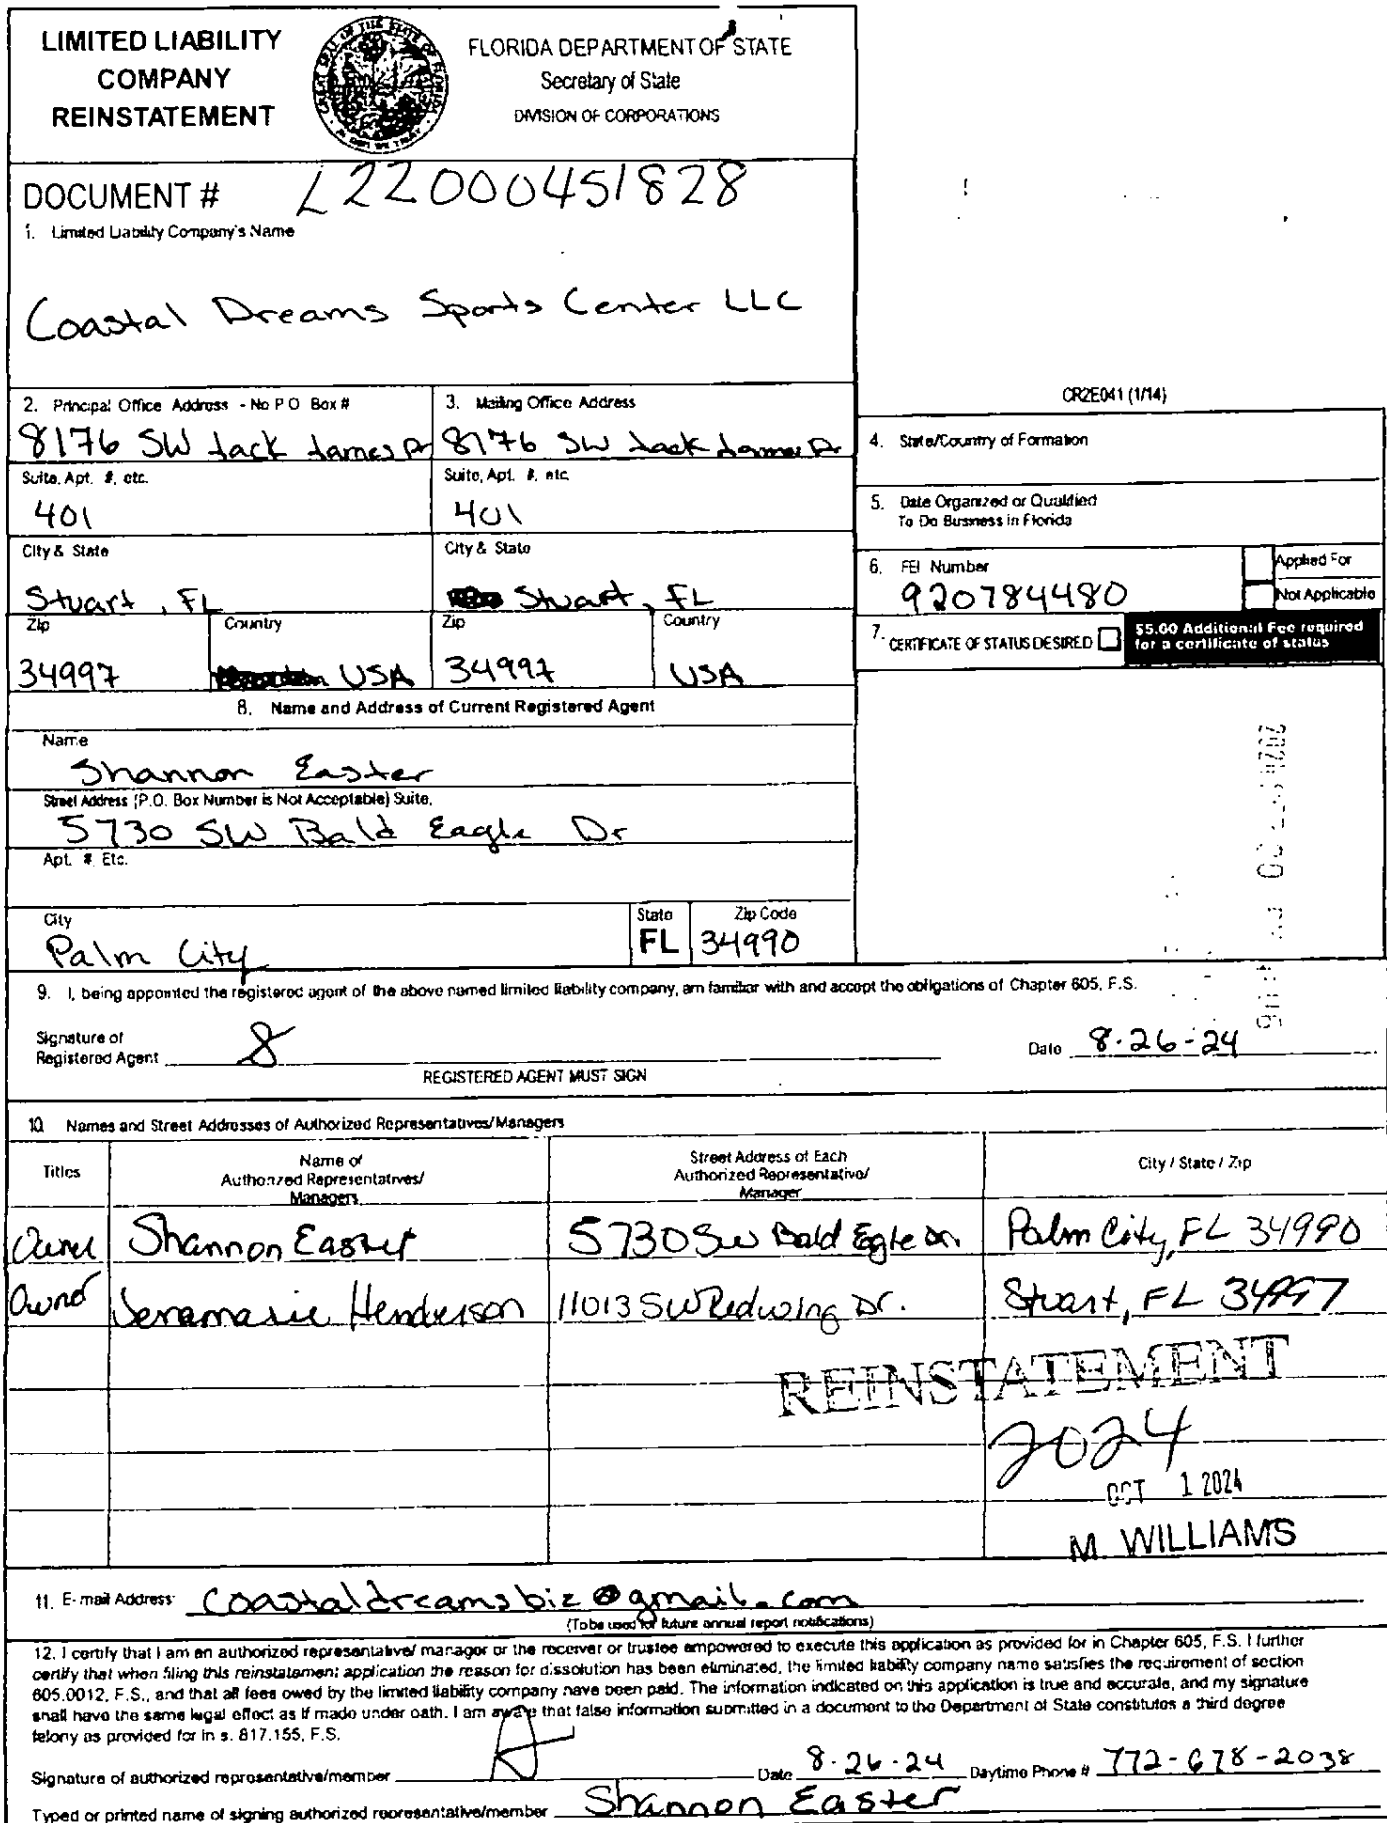 LIMITED LIABILITY
COMPANY
REINSTATEMENT
FLORIDA DEPARTMENT OF STATE
Secretary of State
DIVISION OF CORPORATIONS
DOCUMENT # L22000451828
1. Limited Liability Company's Name
Coastal Dreams Sports Center LLC
CR2E041 (1/14)
2. Principal Office Address - No P O Box #
8176 SW Jack James Dr
3. Mailing Office Address
8176 SW Jack James Dr
Suite, Apt. #, etc.
401
Suite, Apt. #, etc.
401
City & State
Stuart, FL
City & State
Stuart, FL
Zip
34997
Country
USA
Zip
34997
Country
USA
4. State/Country of Formation
5. Date Organized or Qualified
To Do Business in Florida
6. FEI Number
920784480
Applied For
Not Applicable
7. CERTIFICATE OF STATUS DESIRED
$5.00 Additional Fee required
for a certificate of status
8. Name and Address of Current Registered Agent
Name
Shannon Easter
Street Address (P.O. Box Number is Not Acceptable) Suite,
5730 SW Bald Eagle Dr
Apt. # Etc.
City
Palm City
State
FL
Zip Code
34990
9. I, being appointed the registered agent of the above named limited liability company, am familiar with and accept the obligations of Chapter 605, F.S.
Signature of
Registered Agent
Date 8-26-24
REGISTERED AGENT MUST SIGN
10. Names and Street Addresses of Authorized Representatives/Managers
Titles
Name of
Authorized Representatives/
Managers
Street Address of Each
Authorized Representative/
Manager
City / State / Zip
Owner Shannon Easter 5730 SW Bald Egle Dr. Palm City, FL 34990
Owner Jenamarie Henderson 11013 SW Redwing Dr. Stuart, FL 34997
REINSTATEMENT
2024
OCT 1 2024
M. WILLIAMS
11. E-mail Address: coastaldreamsbiz@gmail.com
(To be used for future annual report notifications)
12. I certify that I am an authorized representative/ manager or the receiver or trustee empowered to execute this application as provided for in Chapter 605, F.S. I further
certify that when filing this reinstatement application the reason for dissolution has been eliminated, the limited liability company name satisfies the requirement of section
605.0012, F.S., and that all fees owed by the limited liability company have been paid. The information indicated on this application is true and accurate, and my signature
shall have the same legal effect as if made under oath. I am aware that false information submitted in a document to the Department of State constitutes a third degree
felony as provided for in s. 817.155, F.S.
Signature of authorized representative/member
Date 8-26-24 Daytime Phone # 772-678-2038
Typed or printed name of signing authorized representative/member Shannon Easter